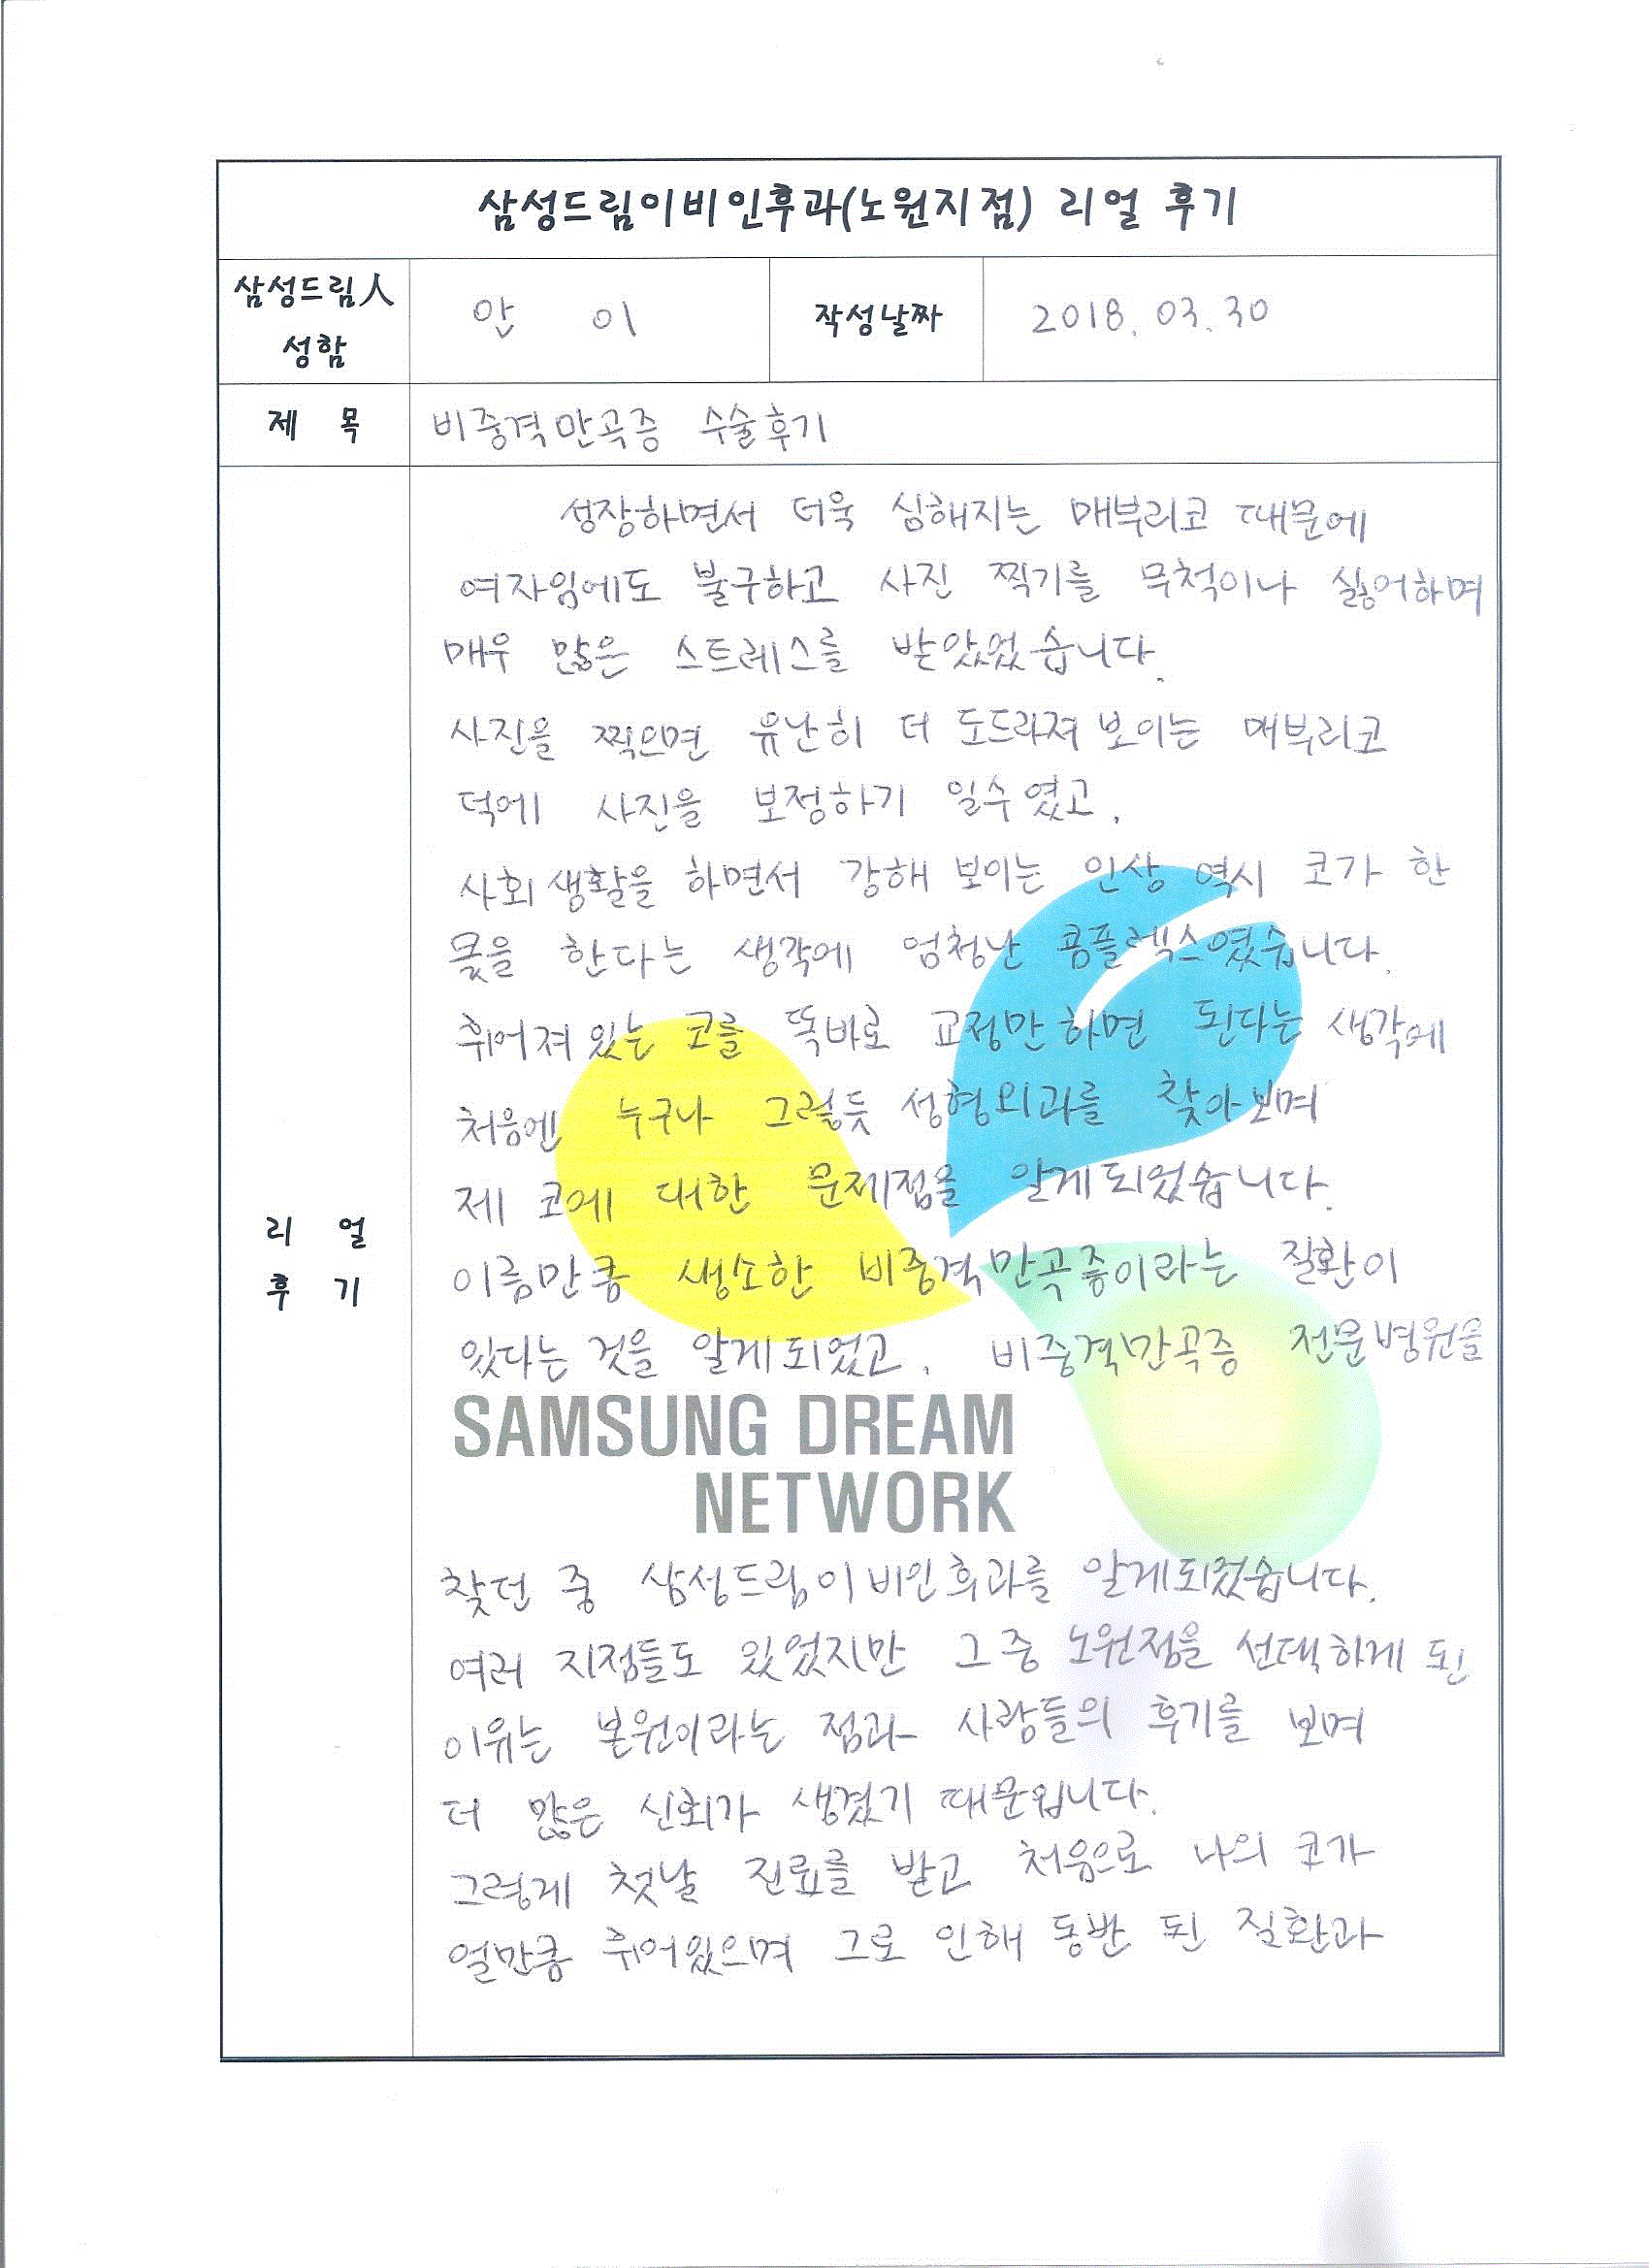 삼성드림이비인후과(노원지점) 리얼 후기
삼성드림人
성함
안 이
작성날짜
2018. 03. 30
제 목
비중격만곡증 수술후기
리 얼
후 기
성장하면서 더욱 심해지는 매부리코 때문에
여자임에도 불구하고 사진 찍기를 무척이나 싫어하며
매우 많은 스트레스를 받았었습니다.
사진을 찍으면 유난히 더 도드라져 보이는 매부리코
덕에 사진을 보정하기 일수였고,
사회생활을 하면서 강해 보이는 인상 역시 코가 한
몫을 한다는 생각에 엄청난 콤플렉스였습니다.
휘어져 있는 코를 똑바로 교정만 하면 된다는 생각에
처음엔 누구나 그럴듯 성형외과를 찾아보며
제 코에 대한 문제점을 알게되었습니다.
이름만큼 생소한 비중격만곡증이라는 질환이
있다는 것을 알게되었고, 비중격만곡증 전문병원을
SAMSUNG DREAM
NETWORK
찾던 중 삼성드림이비인후과를 알게되었습니다.
여러 지점들도 있었지만 그 중 노원점을 선택하게 된
이유는 본원이라는 점과 사람들의 후기를 보며
더 많은 신뢰가 생겼기 때문입니다.
그렇게 첫날 진료를 받고 처음으로 나의 코가
얼만큼 휘어있으며 그로 인해 동반 된 질환과